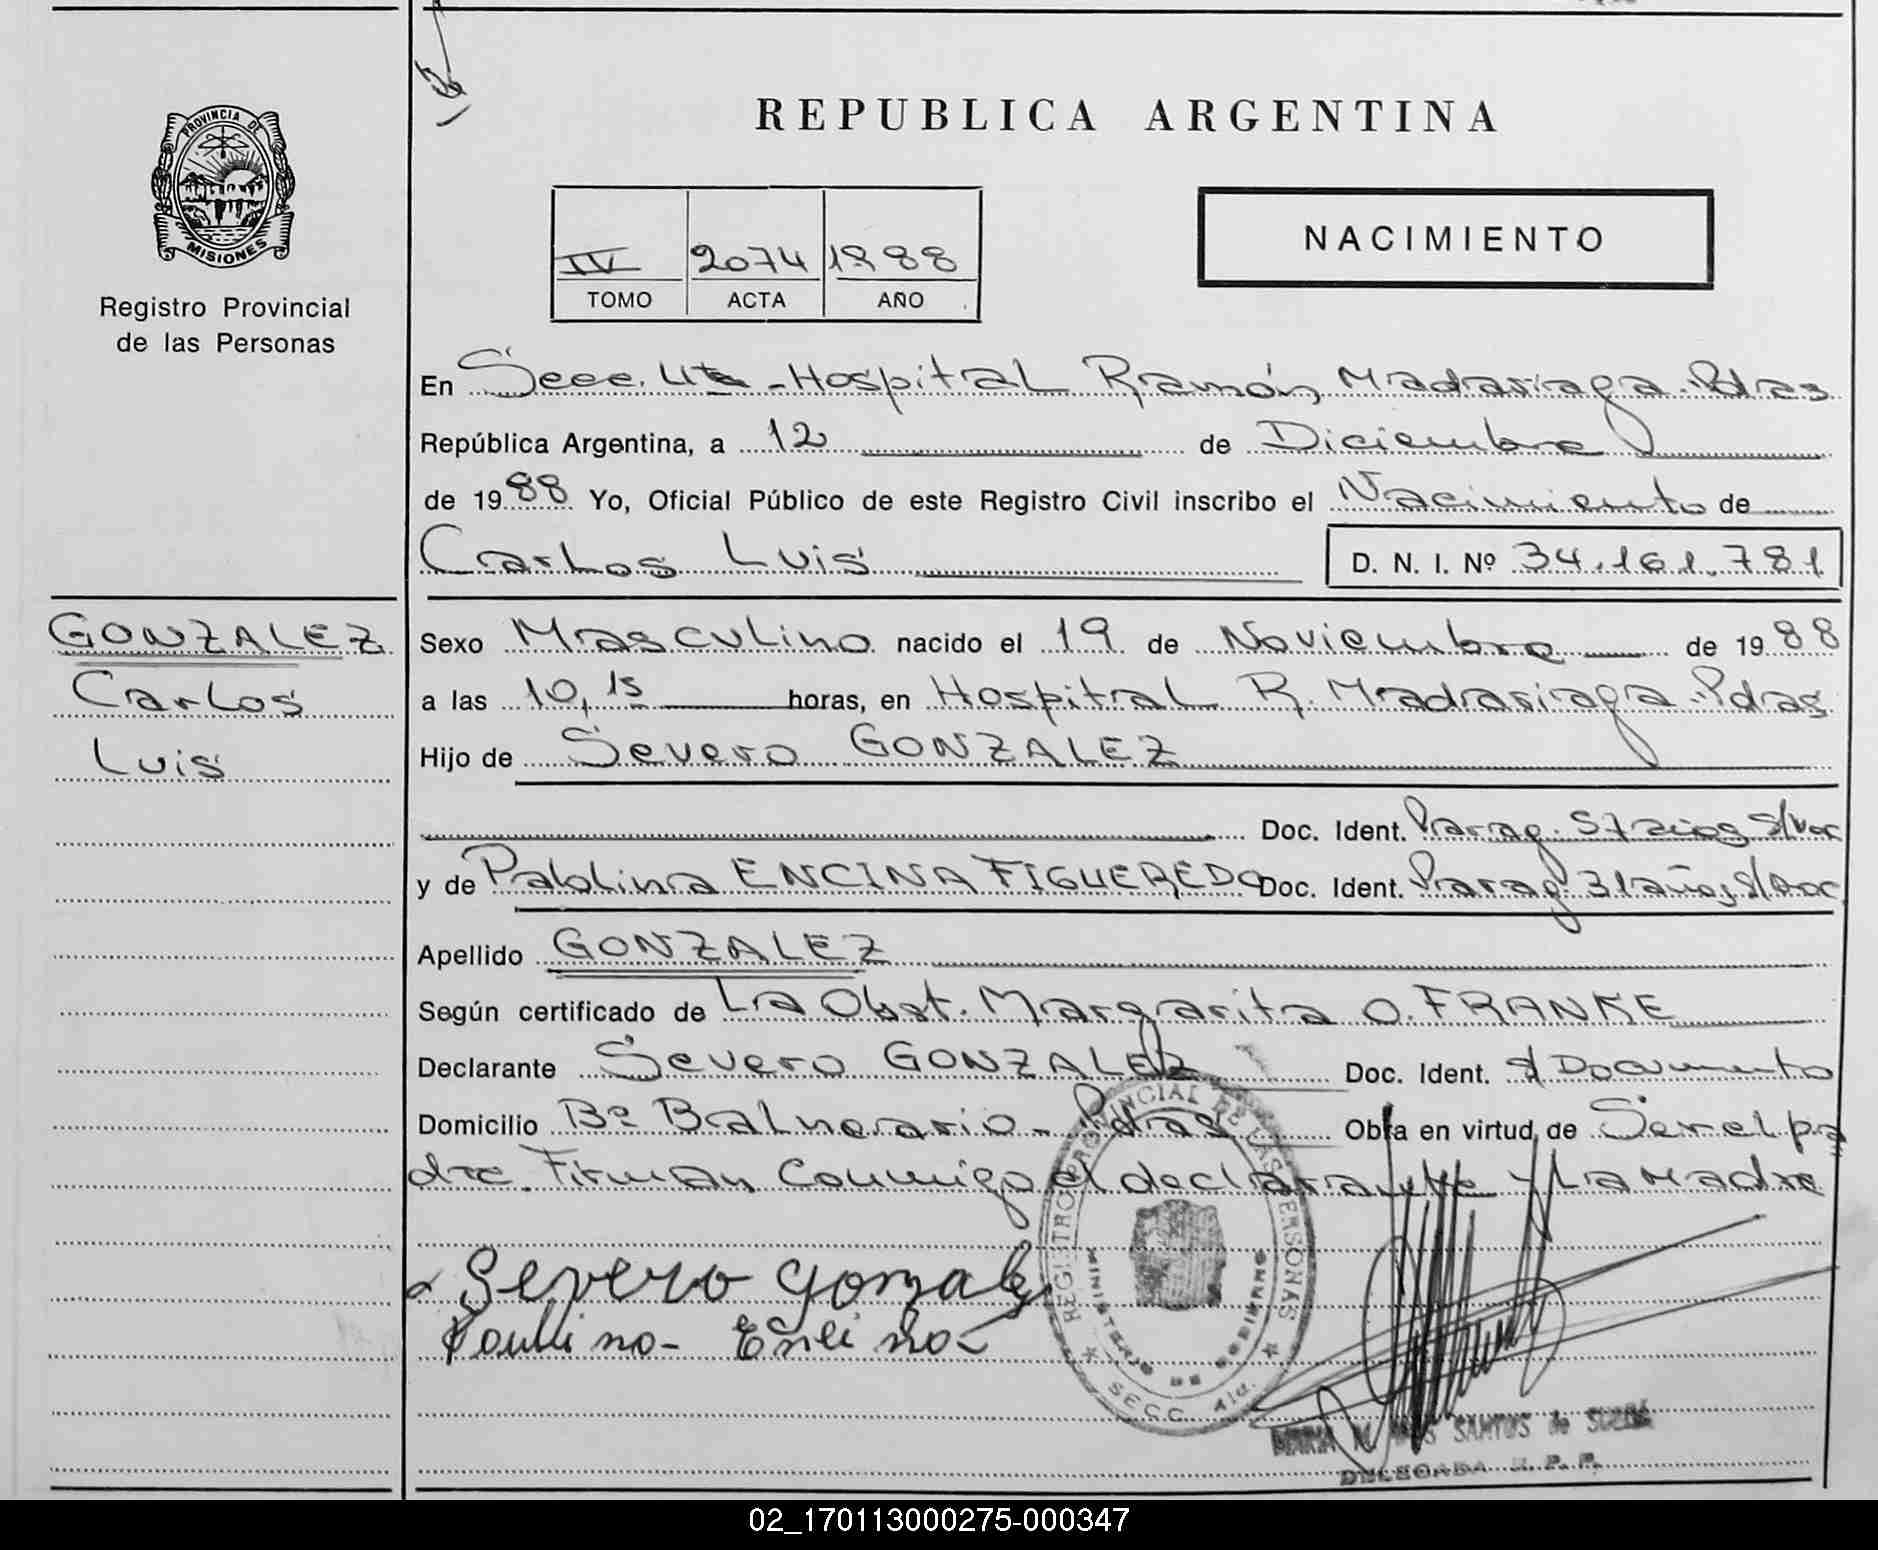 PROVINCIA DE
MISIONES
Registro Provincial
de las Personas
REPUBLICA ARGENTINA
IV 2074 1988
TOMO ACTA AÑO
NACIMIENTO
En Secc. 4ta - Hospital Ramón Madariaga. Pdas
República Argentina, a 12 de Diciembre
de 1988 Yo, Oficial Público de este Registro Civil inscribo el Nacimiento de
Carlos Luis D. N. I. Nº 34.161.781
GONZALEZ
Carlos
Luis
Sexo Masculino nacido el 19 de Noviembre de 1988
a las 10,15 horas, en Hospital R. Madariaga. Pdas
Hijo de Severo GONZALEZ
Doc. Ident. Parag. 57 años S/Doc
y de Pablina ENCINA FIGUEREDO Doc. Ident. Parag. 31 años S/Doc
Apellido GONZALEZ
Según certificado de La Obst. Margarita O. FRANKE
Declarante Severo GONZALEZ Doc. Ident. S/Documento
Domicilio Bº Balneario - Pdas Obra en virtud de Ser el pa
dre. Firman Conmigo el declarante y La Madre
Severo Gonzalez
Encina
REGISTRO PROVINCIAL DE LAS PERSONAS
MINISTERIO DE GOBIERNO
SECC. 4ta.
SANTOS de
DELEGADA R. P. P.
02_170113000275-000347